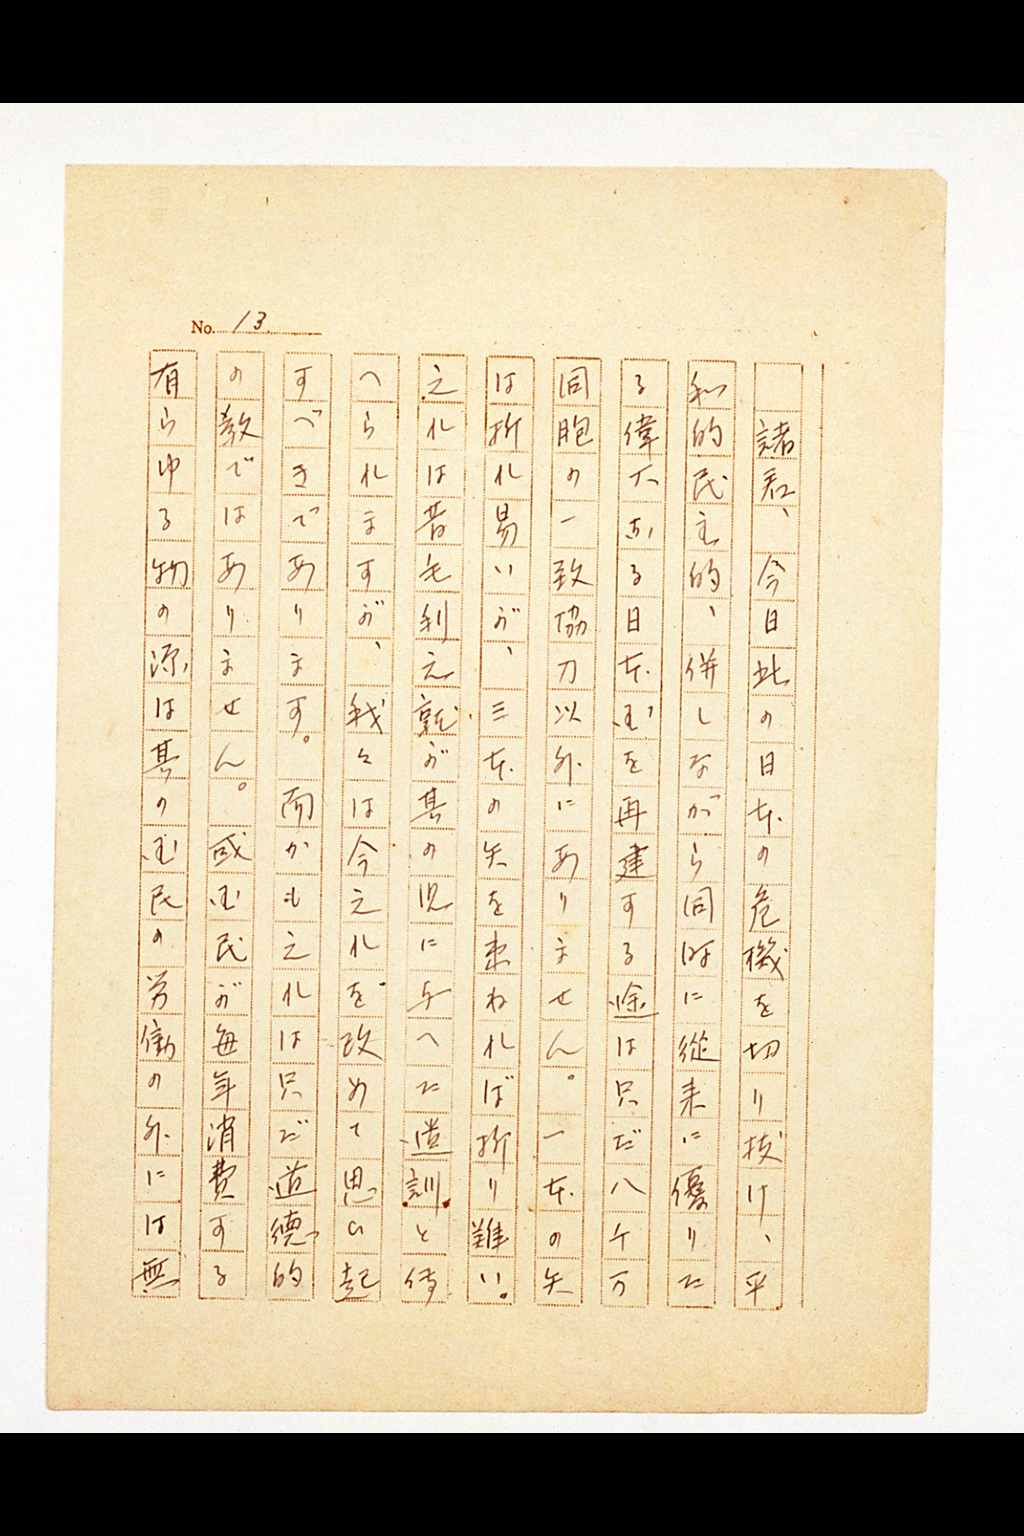 No. 13.
諸君、今日此の日本の危機を切り抜け、平
和的民主的、併しながら同時に從来に優りた
る偉大なる日本国を再建する途は只だ八千万
同胞の一致協力以外にありません。一本の矢
は折れ易いが、三本の矢を束ねれば折り難い。
之れは昔毛利元就が其の児に与へた道訓と傳
へられますが、我々は今之れを改めて思い起
すべきであります。而かも之れは只だ道徳的
の教ではありません。或国民が毎年消費する
有らゆる物の源は其の国民の労働の外には無